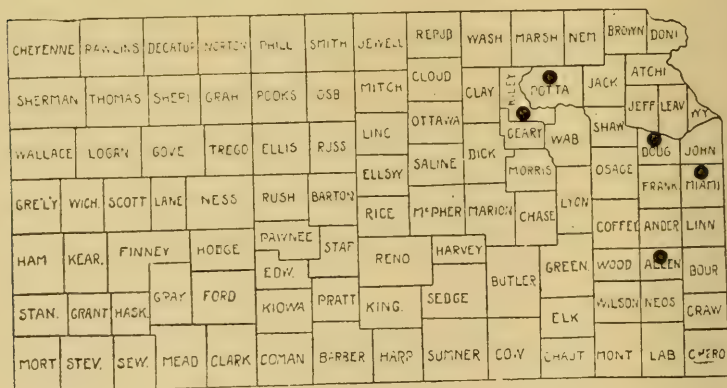 CHEYENNE RAWLINS DECATUR NORTON PHILL SMITH JEWELL REPUB WASH MARSH NEM BROWN DONI
SHERMAN THOMAS SHERI GRAH ROOKS OSB MITCH CLOUD CLAY RILEY POTTA JACK ATCHI
JEFF LEAV WY
WALLACE LOGAN GOVE TREGO ELLIS RUSS LINC OTTAWA DICK GEARY WAB SHAW DOUG JOHN
ELLSW SALINE MORRIS OSAGE
GRE'LY WICH. SCOTT LANE NESS RUSH BARTON RICE McPHER MARION CHASE LYON FRANK MIAMI
COFFEY ANDER LINN
HAM KEAR. FINNEY HODGE PAWNEE STAF RENO HARVEY
EDW. BUTLER GREEN WOOD ALLEN BOUR
STAN. GRANT HASK. GRAY FORD KIOWA PRATT KING. SEDGE ELK WILSON NEOS CRAW
MORT STEV. SEW. MEAD CLARK COMAN BARBER HARP SUMNER COW CHAUT MONT LAB CHERO